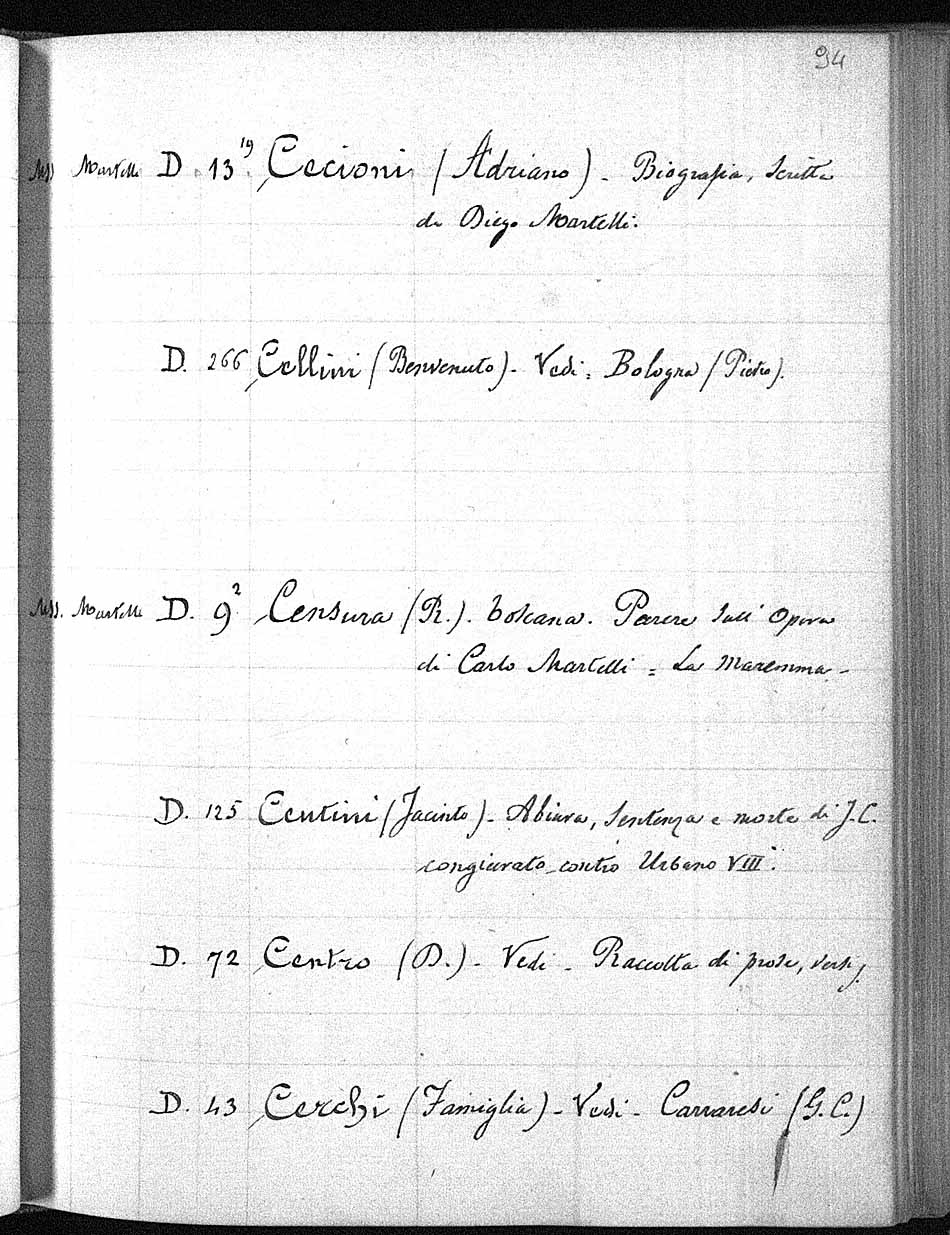 94
Mss Martelli D. 13 19 Cecioni (Adriano) - Biografia, scritta
da Diego Martelli.
D. 266 Cellini (Benvenuto) - Vedi = Bologna (Pietro).
Mss. Martelli D. 9 2 Censura (R.). toscana. Parere sull' Opera
di Carlo Martelli = La Maremma -
D. 125 Centini (Jacinto) - Abiura, Sentenza e morte di J. C.
congiurato contro Urbano VIII.
D. 72 Centro (D.) - Vedi - Raccolta di prose, versi,
D. 43 Cerchi (Famiglia) - Vedi - Carraresi (G. C.)